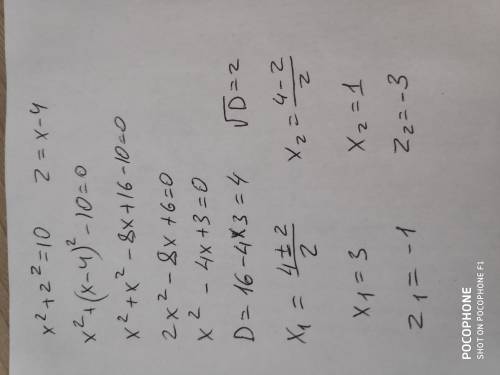 x²+z²=10 z=x-4
x²+(x-4)²-10=0
x²+x²-8x+16-10=0
2x²-8x+6=0
x²-4x+3=0
D=16-4*3=4 √D=2
x₁=(4±2)/2 x₂=(4-2)/2
x₁=3 x₂=1
z₁=-1 z₂=-3
POCOPHONE
SHOT ON POCOPHONE F1